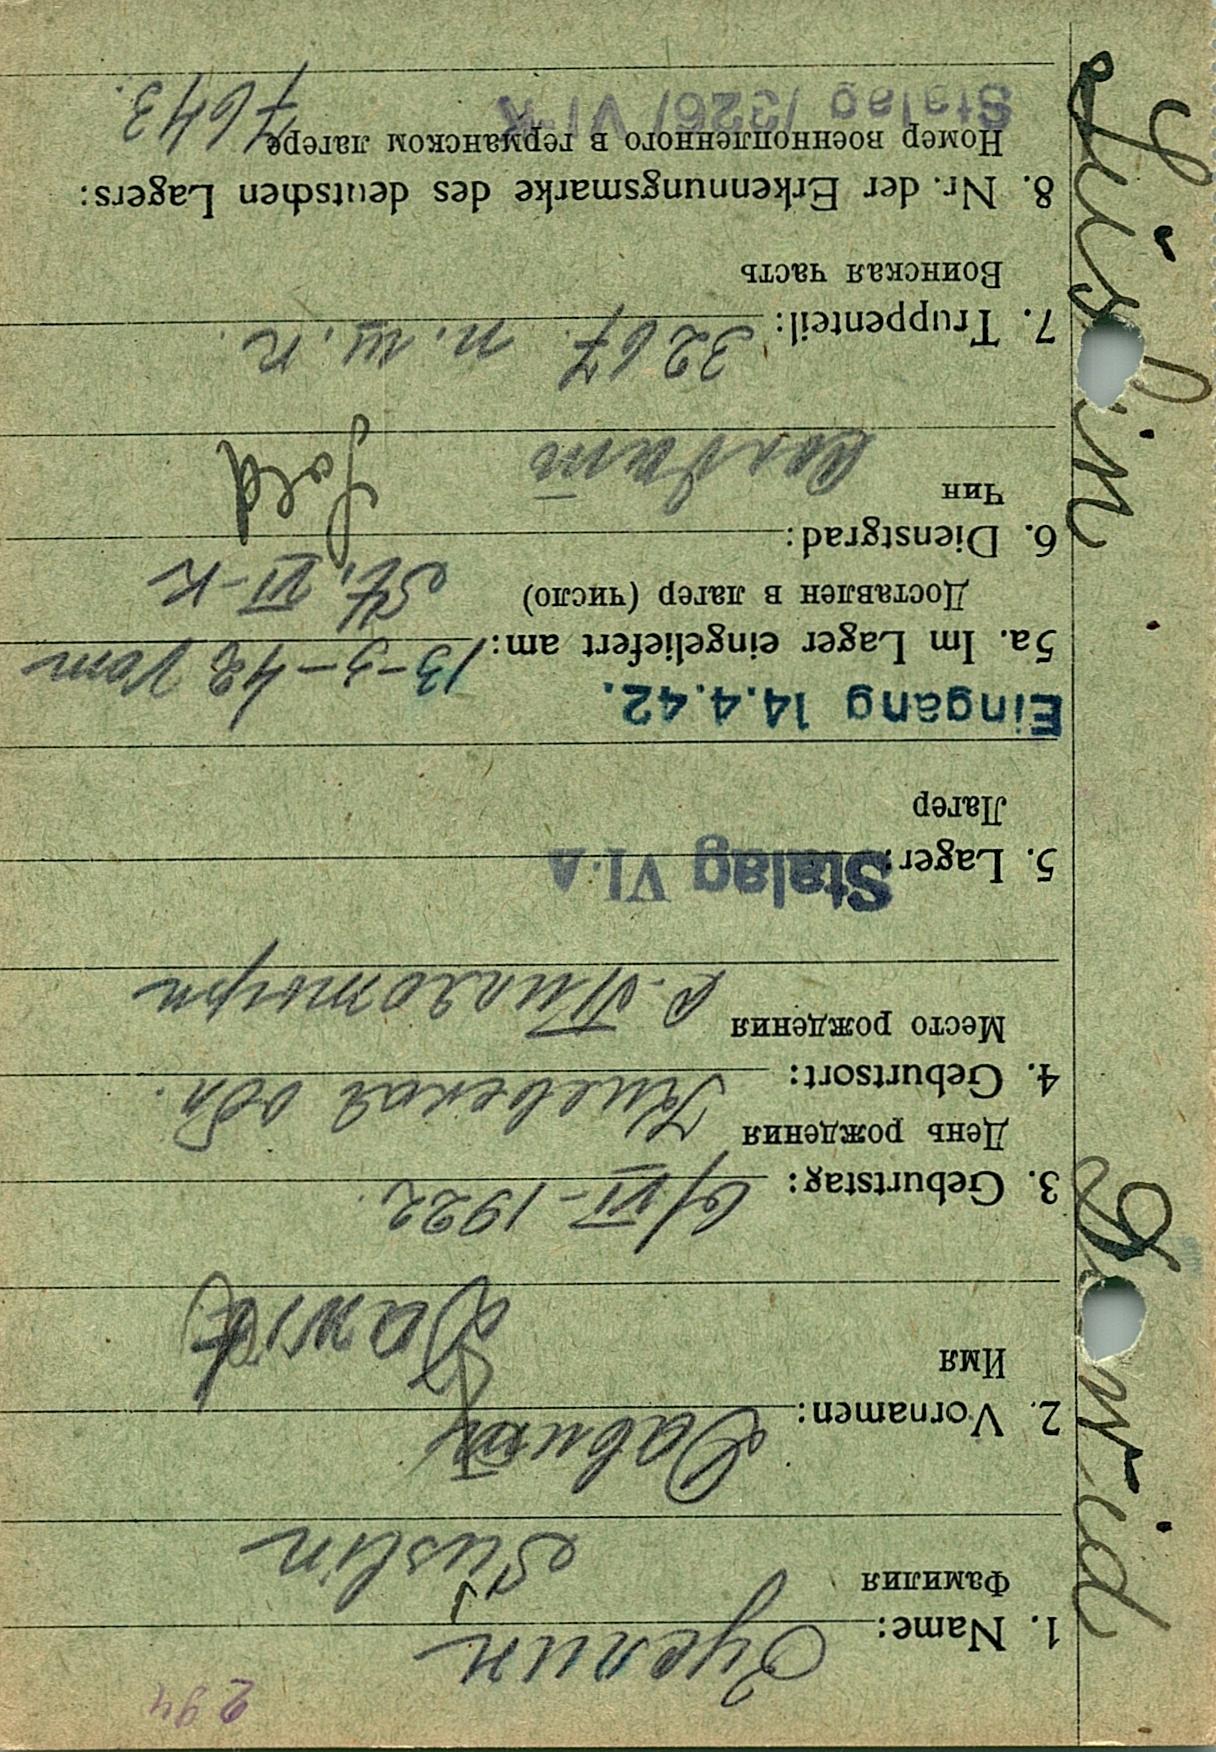 294
1. Name: Суслин
Фамилия
Süslin
2. Vornamen: Давид
Имя
Dawid
3. Geburtstag: 6/VI-1922.
День рождения
4. Geburtsort: Киевская обл.
Место рождения
с.
5. Lager: Stalag VI.A
Лагер
Eingang 14.4.42.
5a. Im Lager eingeliefert am: 13-3-42 vom
Доставлен в лагер (число) St. VI-K
6. Dienstgrad: Sold
Чин
солдат
7. Truppenteil: 3267. п.ш.п.
Воинская часть
8. Nr. der Erkennungsmarke des deutschen Lagers:
Номер военнопленного в германском лагере 7643.
Stalag /326/ VI-K
Süslin Dawid